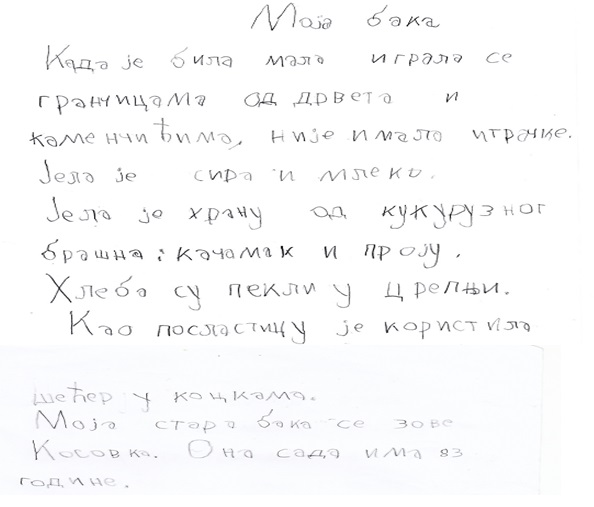 Моја бака
Када је била мала играла се
гранчицама од дрвета и
каменчићима, није имала играчке.
Јела је сира и млеки.
Јела је храну од кукурузног
брашна: качамак и проју.
Хлеба су пекли у црепњи.
Као посластицу је користила
шећер у коцкама.
Моја стара бака се зове
Косовка. Она сада има 83
године.